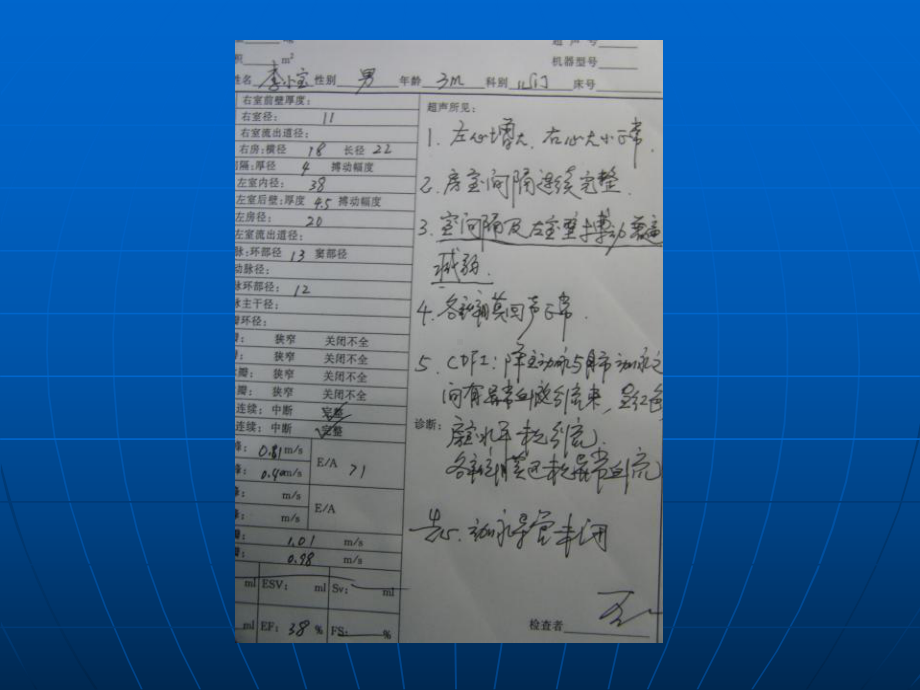 超声号
积 m²
机器型号
姓名 李小宝 性别 男 年龄 3m 科别 儿门 床号
右室前壁厚度：
右室径： 11
右室流出道径：
右房：横径 18 长径 22
隔：厚径 4 搏动幅度
左室内径： 38
左室后壁：厚度 4.5 搏动幅度
左房径： 20
左室流出道径：
脉：环部径 13 窦部径
动脉径：
脉环部径： 12
脉主干径：
瓣环径：
瓣： 狭窄 关闭不全
瓣： 狭窄 关闭不全
瓣： 狭窄 关闭不全
瓣： 狭窄 关闭不全
连续：中断 完整
连续：中断 完整
峰： 0.81 m/s
峰： 0.40 m/s
E/A >1
峰： m/s
峰： m/s
E/A
瓣： 1.01 m/s
瓣： 0.98 m/s
ml ESV： ml Sv： ml
ml EF： 38 % FS： %
超声所见：
1. 左心增大，右心大小正常．
2. 房室间隔连续完整．
3. 室间隔及左室壁搏动幅度
减弱．
4. 各瓣膜回声正常．
5. CDFI：降主动脉与肺动脉之
间有异常血流引流束，呈红色
诊断：
房室水平未见引流．
各瓣膜区未见异常血流
先心．动脉导管未闭
检查者